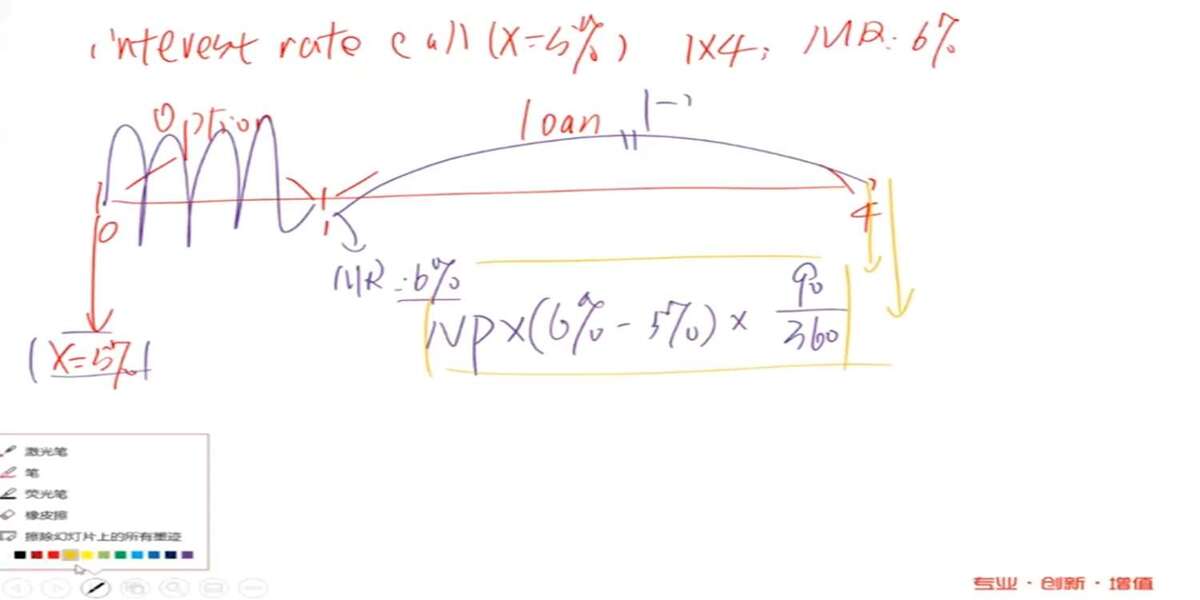 interest rate call (X=5%) 1×4; MR: 6%
Option
loan
0
1
4
MR: 6%
NP×(6%-5%)× 90/360
(X=5%)
激光笔
笔
荧光笔
橡皮擦
擦除幻灯片上的所有墨迹
专业·创新·增值